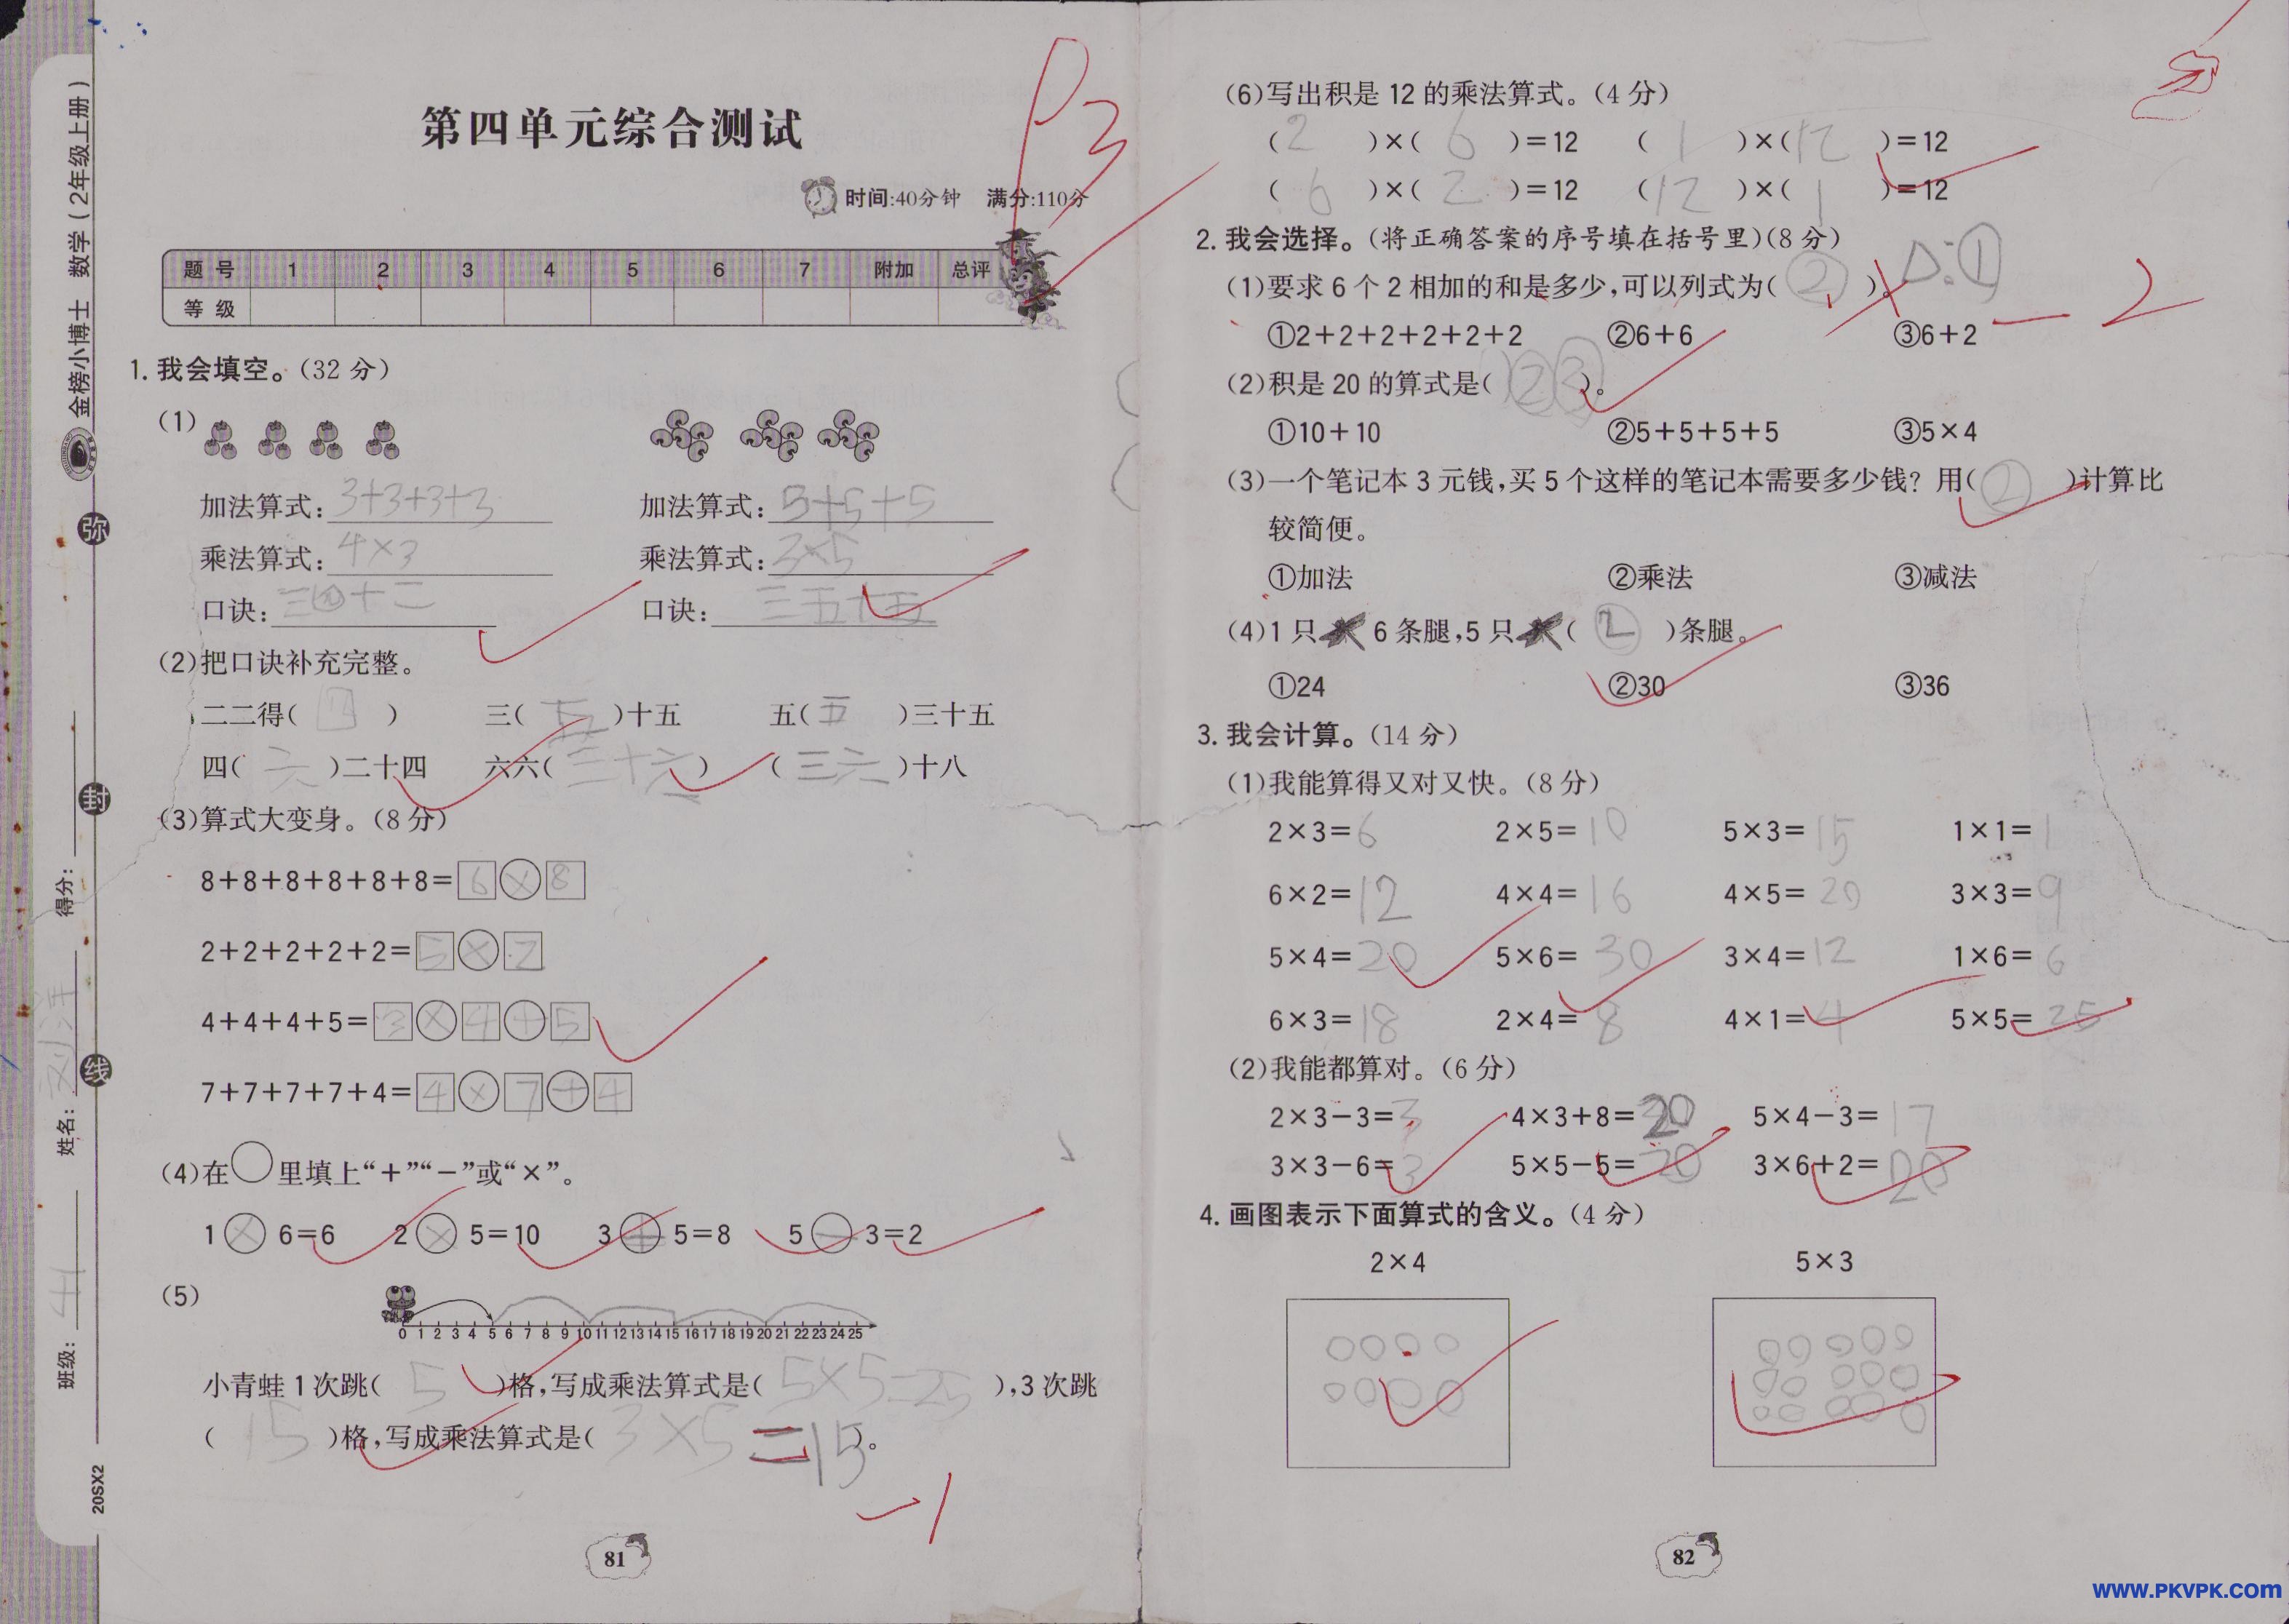 金榜小博士 数学(2年级上册)
弥
封
线
得分:
姓名:
班级:
20SX2
第四单元综合测试
时间:40分钟 满分:110分
题号 1 2 3 4 5 6 7 附加 总评
等级
1. 我会填空。(32分)
(1)
加法算式:3+3+3+3 加法算式:5+5+5
乘法算式:4×3 乘法算式:3×5
口诀:三四十二 口诀:三五十五
(2)把口诀补充完整。
二二得(四) 三(五)十五 五(五)三十五
四(六)二十四 六六(三十六) (三六)十八
(3)算式大变身。(8分)
8+8+8+8+8+8=6×8
2+2+2+2+2=5×2
4+4+4+5=3×4+5
7+7+7+7+4=4×7+4
(4)在○里填上“+”“-”或“×”。
1×6=6 2×5=10 3+5=8 5-3=2
(5)
0 1 2 3 4 5 6 7 8 9 10 11 12 13 14 15 16 17 18 19 20 21 22 23 24 25
小青蛙1次跳(5)格,写成乘法算式是(5×5=25),3次跳
(15)格,写成乘法算式是(3×5=15)。
-1
81
(6)写出积是12的乘法算式。(4分)
(2)×(6)=12 (1)×(12)=12
(6)×(2)=12 (12)×(1)=12
2. 我会选择。(将正确答案的序号填在括号里)(8分)
(1)要求6个2相加的和是多少,可以列式为(②)。 ①
①2+2+2+2+2+2 ②6+6 ③6+2 -2
(2)积是20的算式是(②③)。
①10+10 ②5+5+5+5 ③5×4
(3)一个笔记本3元钱,买5个这样的笔记本需要多少钱?用(②)计算比
较简便。
①加法 ②乘法 ③减法
(4)1只 6条腿,5只 (②)条腿。
①24 ②30 ③36
3. 我会计算。(14分)
(1)我能算得又对又快。(8分)
2×3=6 2×5=10 5×3=15 1×1=1
6×2=12 4×4=16 4×5=20 3×3=9
5×4=20 5×6=30 3×4=12 1×6=6
6×3=18 2×4=8 4×1=4 5×5=25
(2)我能都算对。(6分)
2×3-3=3 4×3+8=20 5×4-3=17
3×3-6=3 5×5-5=20 3×6+2=20
4. 画图表示下面算式的含义。(4分)
2×4 5×3
82
www.PKVPK.com